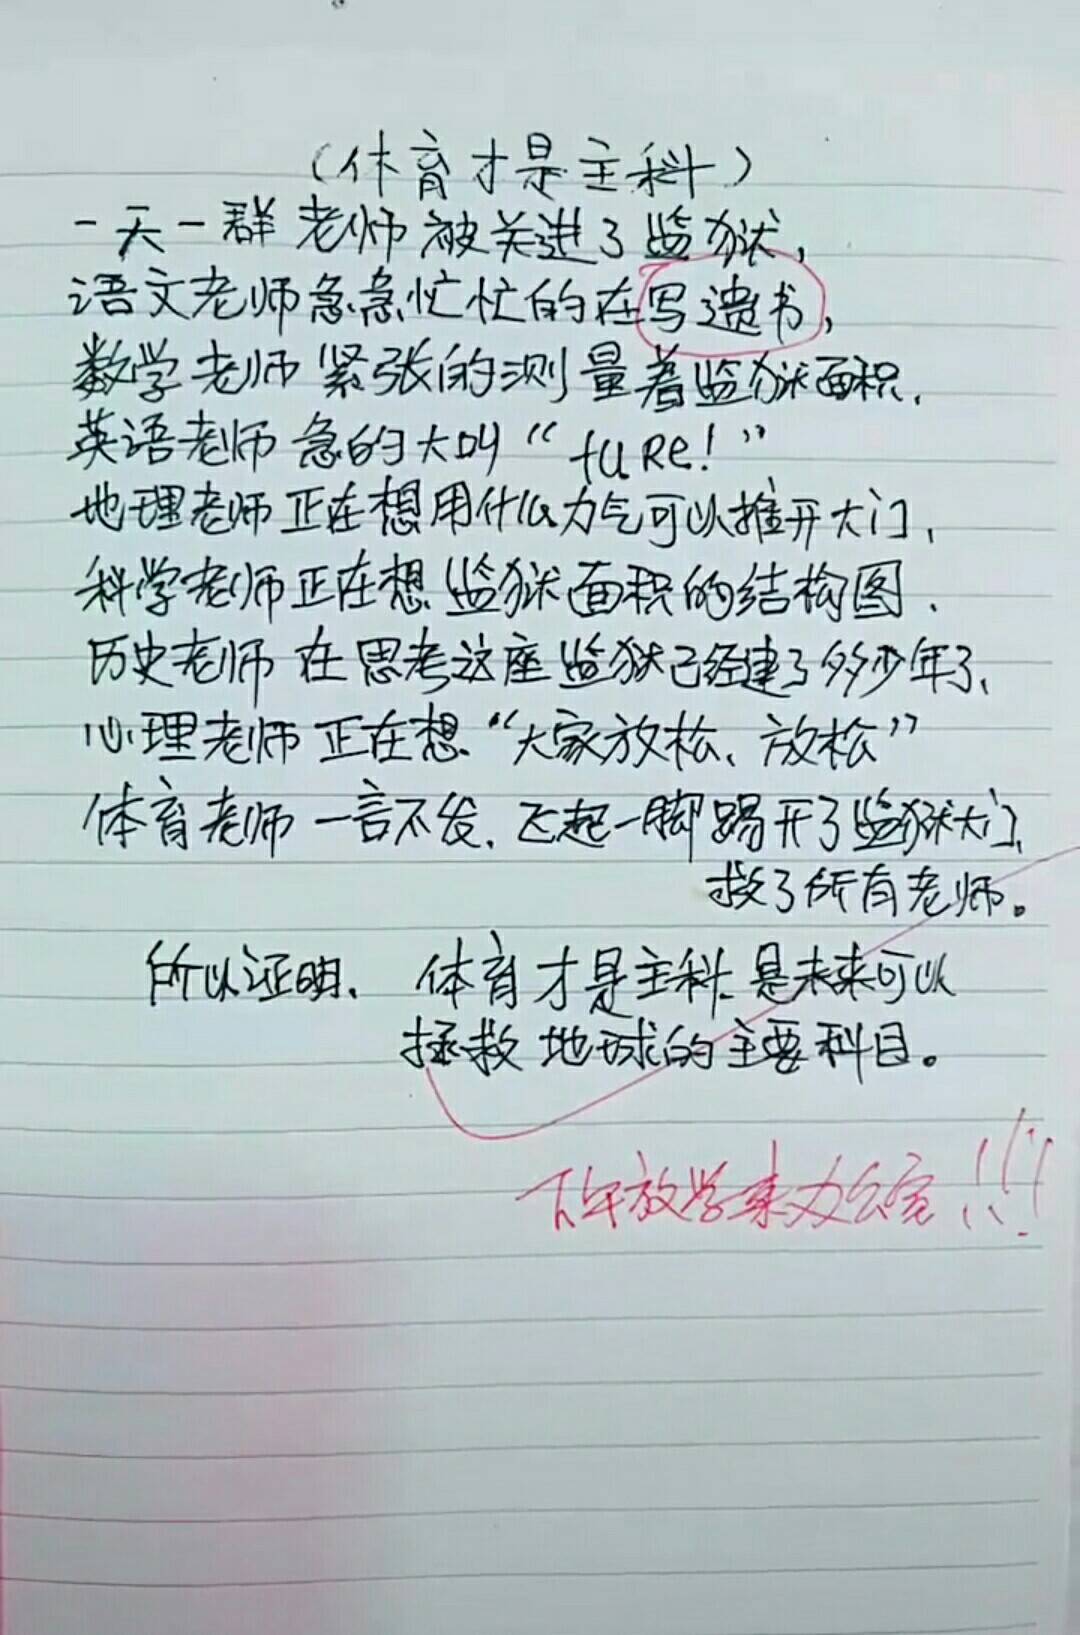 （体育才是主科）
一天一群老师被关进了监狱，
语文老师急急忙忙的在写遗书，
数学老师紧张的测量着监狱面积，
英语老师急的大叫“fuRe！”
地理老师正在想用什么力气可以推开大门，
科学老师正在想监狱面积的结构图．
历史老师在思考这座监狱已经建了多少年了、
心理老师正在想“大家放松、放松”
体育老师一言不发，飞起一脚踢开了监狱大门，
救了所有老师。
所以证明、体育才是主科、是未来可以
拯救地球的主要科目。
下午放学来办公室！！！